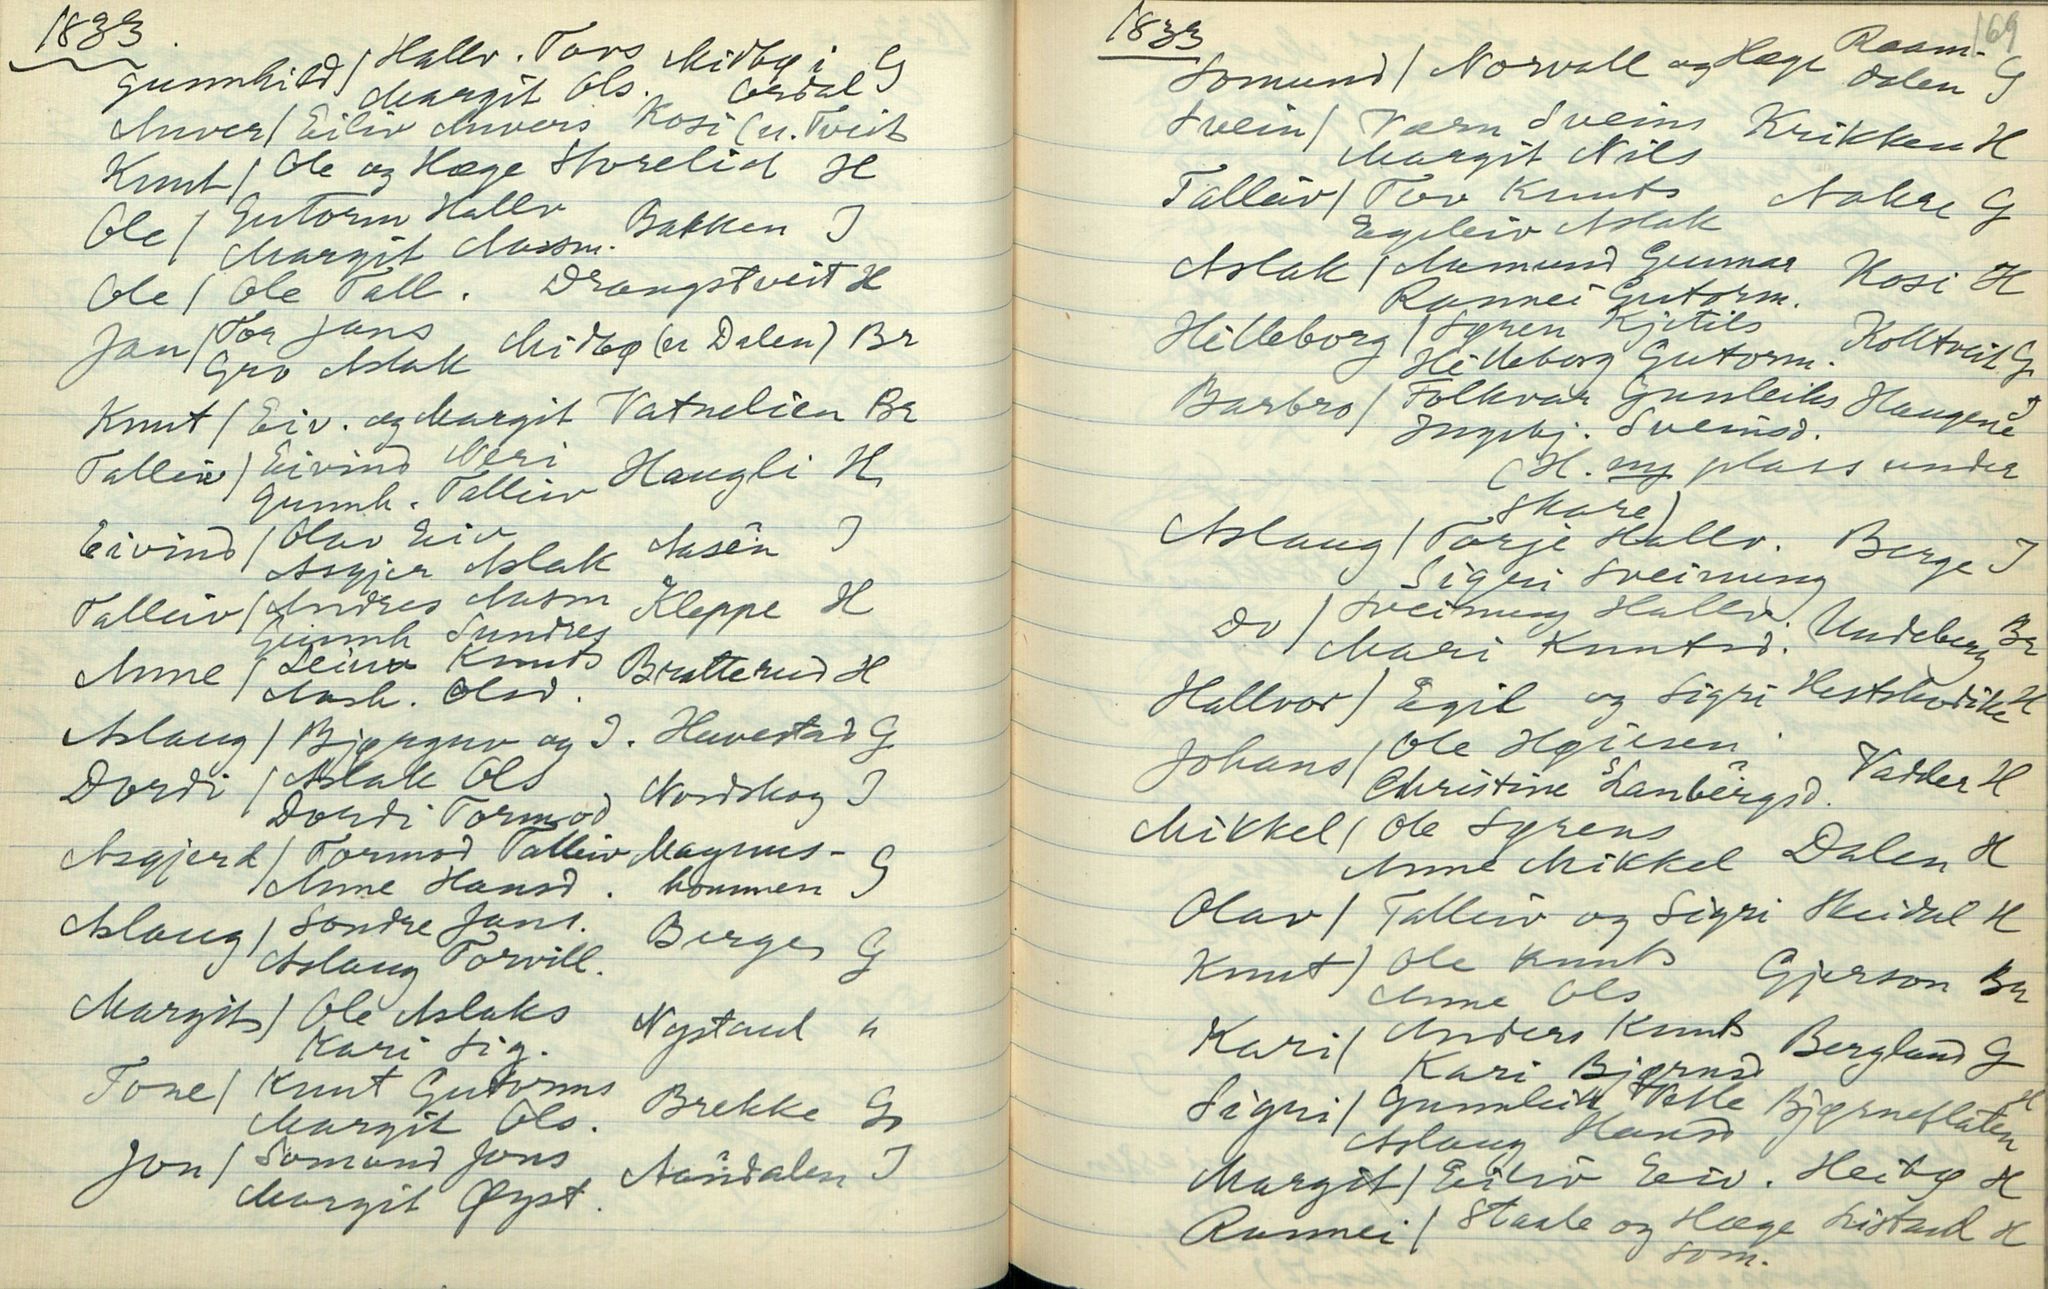 1833.
Gunnhild / Hallv. Tovs Midbø i G
Margit Ols. Ordal
Anver / Eiliv Anvers Kosi (u. Tveit
Knut / Ole og Hæge Storelid H
Ole / Gutorm Hallv Bakken I
Margit Aasm.
Ole / Ole Tall. Drangstveit H
Jan / Tor Jans Midbø (u Dalen) Br
Gro Aslak
Knut / Eiv. og Margit Vatnelien Br
Talleiv / Eivind Neri Haugli H
Gunnh. Talleiv
Eivind / Olav Eiv Aasen I
Asgjer Aslak
Talleiv / Andres Aasm Kleppe H
Gunnh Sundres
Anne / Knuts Bratterud H
Aash. Olsd.
Aslaug / Bjørguv og I. Havestad G
Dordi / Aslak Ols Nordskog I
Dordi Tormod
Asgjerd / Tormod Talleiv Magnus- G
Anne Hansd. hommen
Aslaug / Sondre Jans. Berge G
Aslaug Torvill.
Margit / Ole Aslaks Nystaul "
Kari Sig.
Tone / Knut Gutorms Brekke G
Margit Ols.
Jon / Somund Jons Aandalen I
Margit Øyst.
169
1833
Somund / Norvall og Hæge Raam- G
dalen
Svein / Værn Sveins Krikken H
Margit Nils
Talleiv / Tov Knuts Nakre G
Egeleiv Aslak
Aslak / Aamund Gunnar Kosi H
Rannei Gutorm.
Hilleborg / Søren Kjetils Kolltveit G
Hilleborg Gutorm.
Barbro / Folkvar Gunleiks Haugene I
Ingebj. Sveinsd.
(H. ny plass under
Skare)
Aslaug / Torje Hallv. Berge I
Sigri Sveinung
Do / Sveinung Hallv. Undeberg Br
Mari Knutsd.
Hallvor / Egil og Sigri Hestskodike H
Johans / Ole Høiesen Vadder H
Christine Lambergsd.
Mikkel / Ole Sørens Dalen H
Anne Mikkel
Olav / Talleiv og Sigri Skeidal H
Knut / Ole Knuts Gjerson Br
Anne Ols
Kari / Anders Knuts Bergland G
Kari Bjørnsd
Sigri / Gunnleik Tolle Bjørneflaten H
Aslaug Hansd
Margit / Eiliv Eiv. Heibø H
Rannei / Staale og Hæge Listaul H
Som.